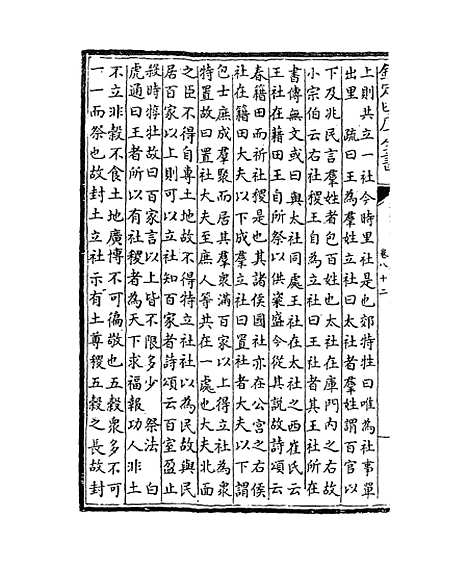 欽定四庫全書
卷八十二
上則共立一社今時里社是也郊特牲曰唯為社事單
出里 疏曰王為羣姓立社曰太社者羣姓謂百官以
下及兆民言羣姓者包百姓也太社在庫門內之右故
小宗伯云右社稷王自為立社曰王社者其王社所在
書傳無文或曰與太社同處王社在太社之西崔氏云
王社在籍田王自所祭以供粢盛今從其說故詩頌云
春籍田而祈社稷是也其諸侯國社亦在公宮之右侯
社在籍田大夫以下成羣立社曰置社者大夫以下謂
包士庶成羣聚而居其羣衆滿百家以上得立社為衆
特置故曰置社大夫至庶人等共在一處也大夫北面
之臣不得自專土地故不得特立社社以為民故與民
居百家以上則可以立社知百家者詩頌云百室盈止
殺時犉牡故曰百家言以上皆不限多少 祭法 白
虎通曰王者所以有社稷者為天下求福報功人非土
不立非穀不食土地廣博不可徧敬也五穀衆多不可
一一而祭也故封土立社示有土尊稷五穀之長故封